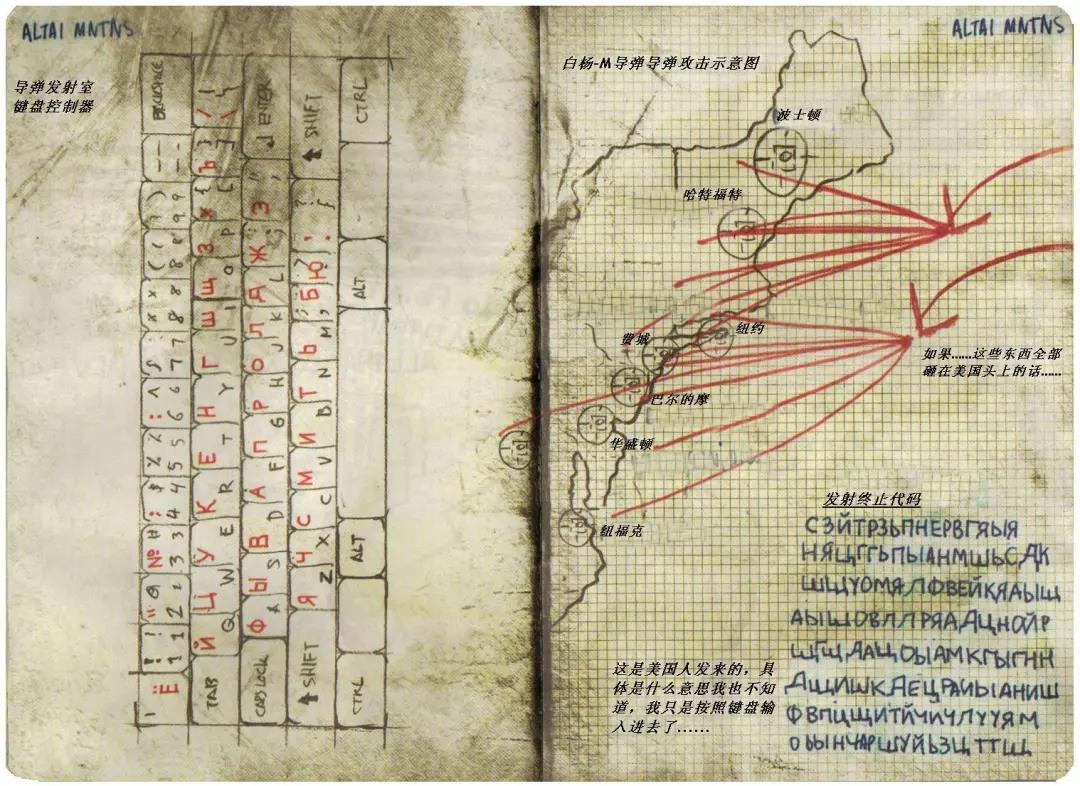 ALTAI MNTNS
导弹发射室
键盘控制器
Ё 1 2 3 4 5 6 7 8 BACKSPACE
TAB Й Ц У К Е Н Г Ш Щ З Х Ъ
Q W E R T Y U I O P
CAPS LOCK Ф Ы В А П Р О Л Д Ж Э ENTER
A S D F G H J K L
SHIFT Я Ч С М И Т Ь Б Ю SHIFT
Z X C V B N M
CTRL ALT ALT CTRL
ALTAI MNTNS
白杨-M导弹导弹攻击示意图
波士顿
哈特福特
纽约
费城
巴尔的摩
华盛顿
纽福克
如果……这些东西全部
砸在美国头上的话……
发射终止代码
СЗЙТРЗЬПНЕРВГЯЫЯ
НЯЦГГЬПЫАНМШЬСДК
ШЩУОМЯЛФВЕЙКЯАЫЩ
АЫШОВЛЛРЯАДЦНОЙР
ЩГЩДАЩОЫАМКГЫГНН
ДЩИШКДЕЦРАИЫАНИШ
ФВПЦЩИТЙЧИЧЛУУЯМ
ОЬЫНЧАРШУЙЬЗЦТТШ
这是美国人发来的，具
体是什么意思我也不知
道，我只是按照键盘输
入进去了……